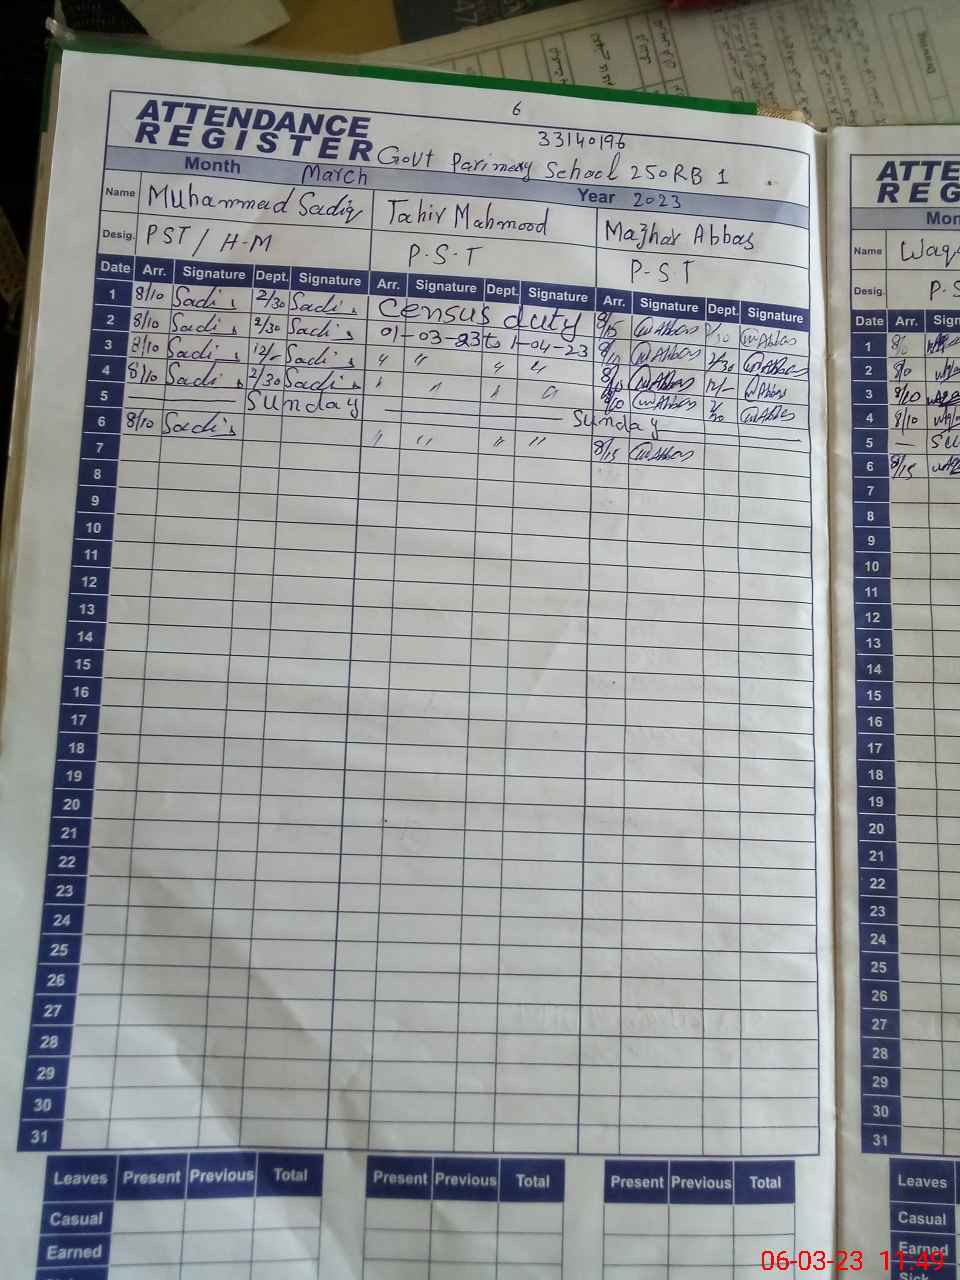 6
ATTENDANCE
REGISTER
33140196
Govt Parimary School 250RB 1
Month March Year 2023
Name Muhammad Sadiq Tahir Mahmood Mazhar Abbas
Desig. PST / H-M P-S-T P-S-T
Date Arr. Signature Dept. Signature Arr. Signature Dept. Signature Arr. Signature Dept. Signature
1 8/10 Sadi 2/30 Sadi Census duty 8/15 Abbas /30 Abbas
2 8/10 Sadi 2/30 Sadi 01-03-23 to 1-04-23 8/10 Abbas 2/30 Abbas
3 8/10 Sadi 12/- Sadi " " " " 8/10 Abbas 12/- Abbas
4 8/10 Sadi 2/30 Sadi " " " " 8/10 Abbas 2/30 Abbas
5 Sunday Sunday
6 8/10 Sadi " " " " 8/15 Abbas
7
8
9
10
11
12
13
14
15
16
17
18
19
20
21
22
23
24
25
26
27
28
29
30
31
Leaves Present Previous Total Present Previous Total Present Previous Total
Casual
Earned
ATTE
REG
Mon
Name Waq
Desig. P-S
Date Arr. Sign
1 8/
2 8/10
3 8/10
4 8/10
5 — Su
6 8/15
7
8
9
10
11
12
13
14
15
16
17
18
19
20
21
22
23
24
25
26
27
28
29
30
31
Leaves
Casual
Earned
Sick
06-03-23 11:49